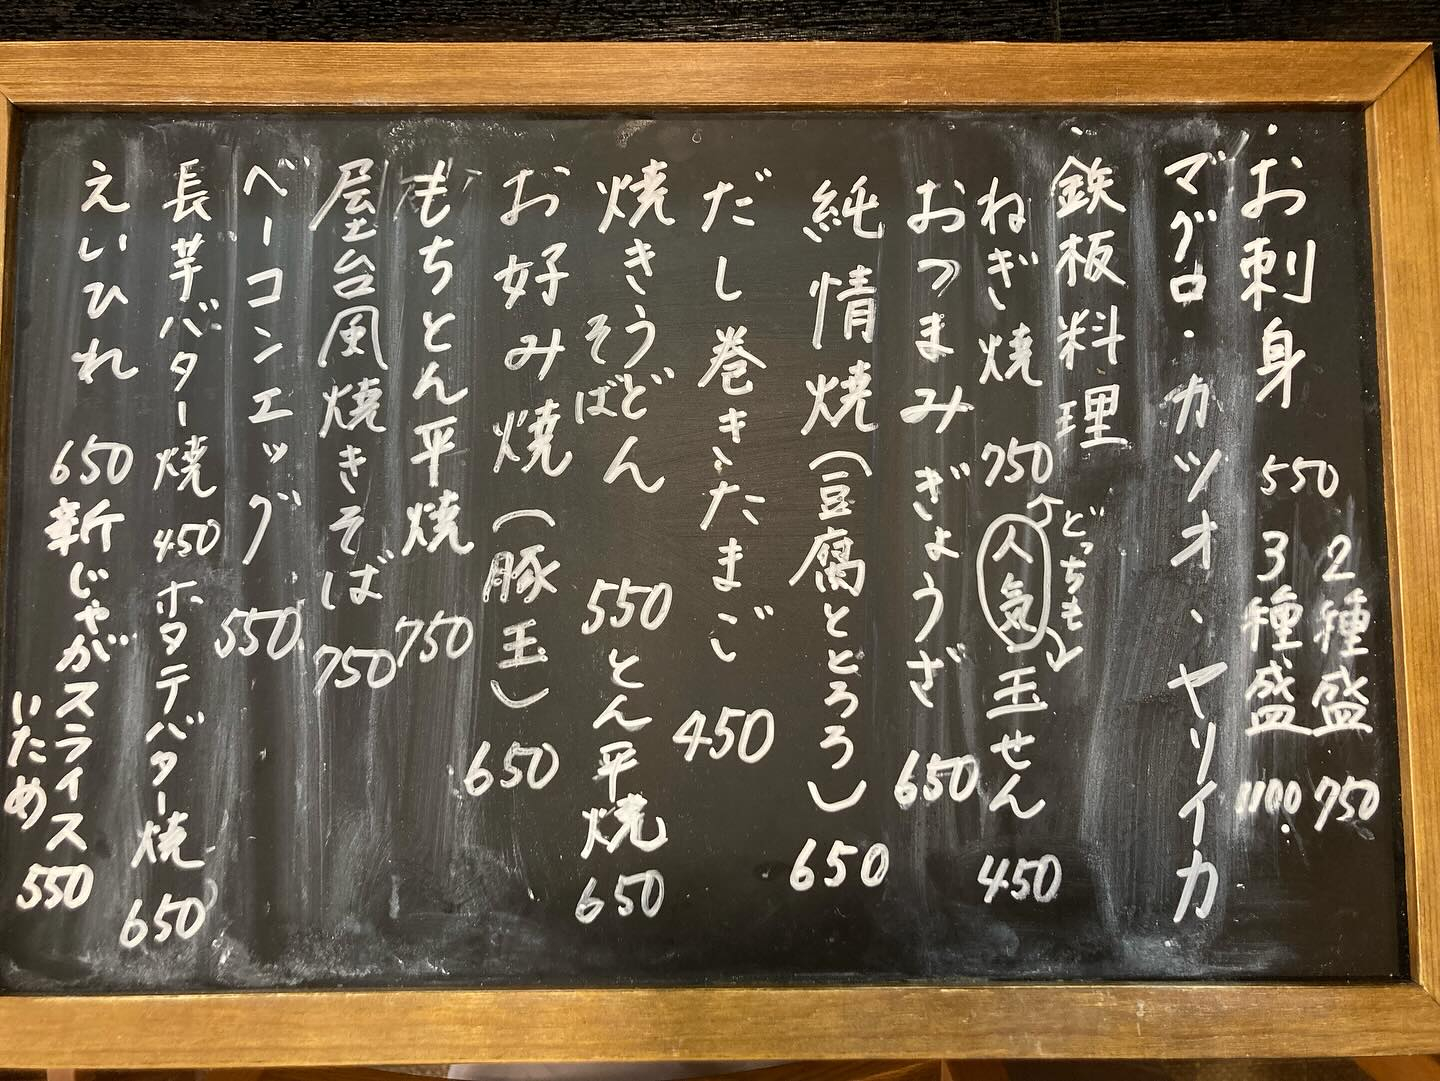 ・お刺身 550 2種盛 750
3種盛 1100.
マグロ・カツオ、ヤリイカ
・鉄板料理
ねぎ焼 750 人気 玉せん 450
どっちも
おつまみぎょうざ 650
純情焼(豆腐ととろろ) 650
だし巻きたまご 450
焼きうどん 550 とん平焼 650
そば
お好み焼(豚玉) 650
もちとん平焼 750
屋台風焼きそば 750
ベーコンエッグ 550
長芋バター焼 450 ホタテバター焼 650
えいひれ 650 新じゃがスライス 550
いため